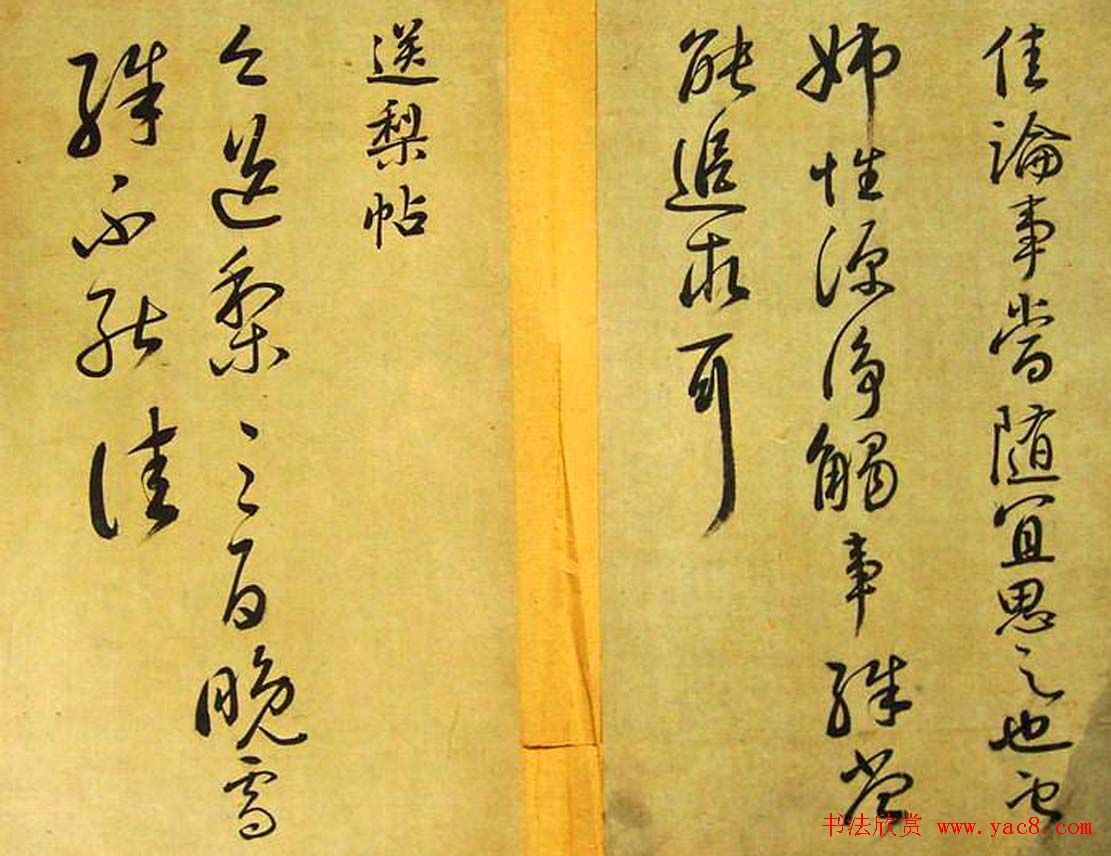 佳論事當隨宜思之也
姊性源淨觸事殊當
能追求耳
送梨帖
今送梨三百晚雪
殊不能佳
书法欣赏 www.yac8.com